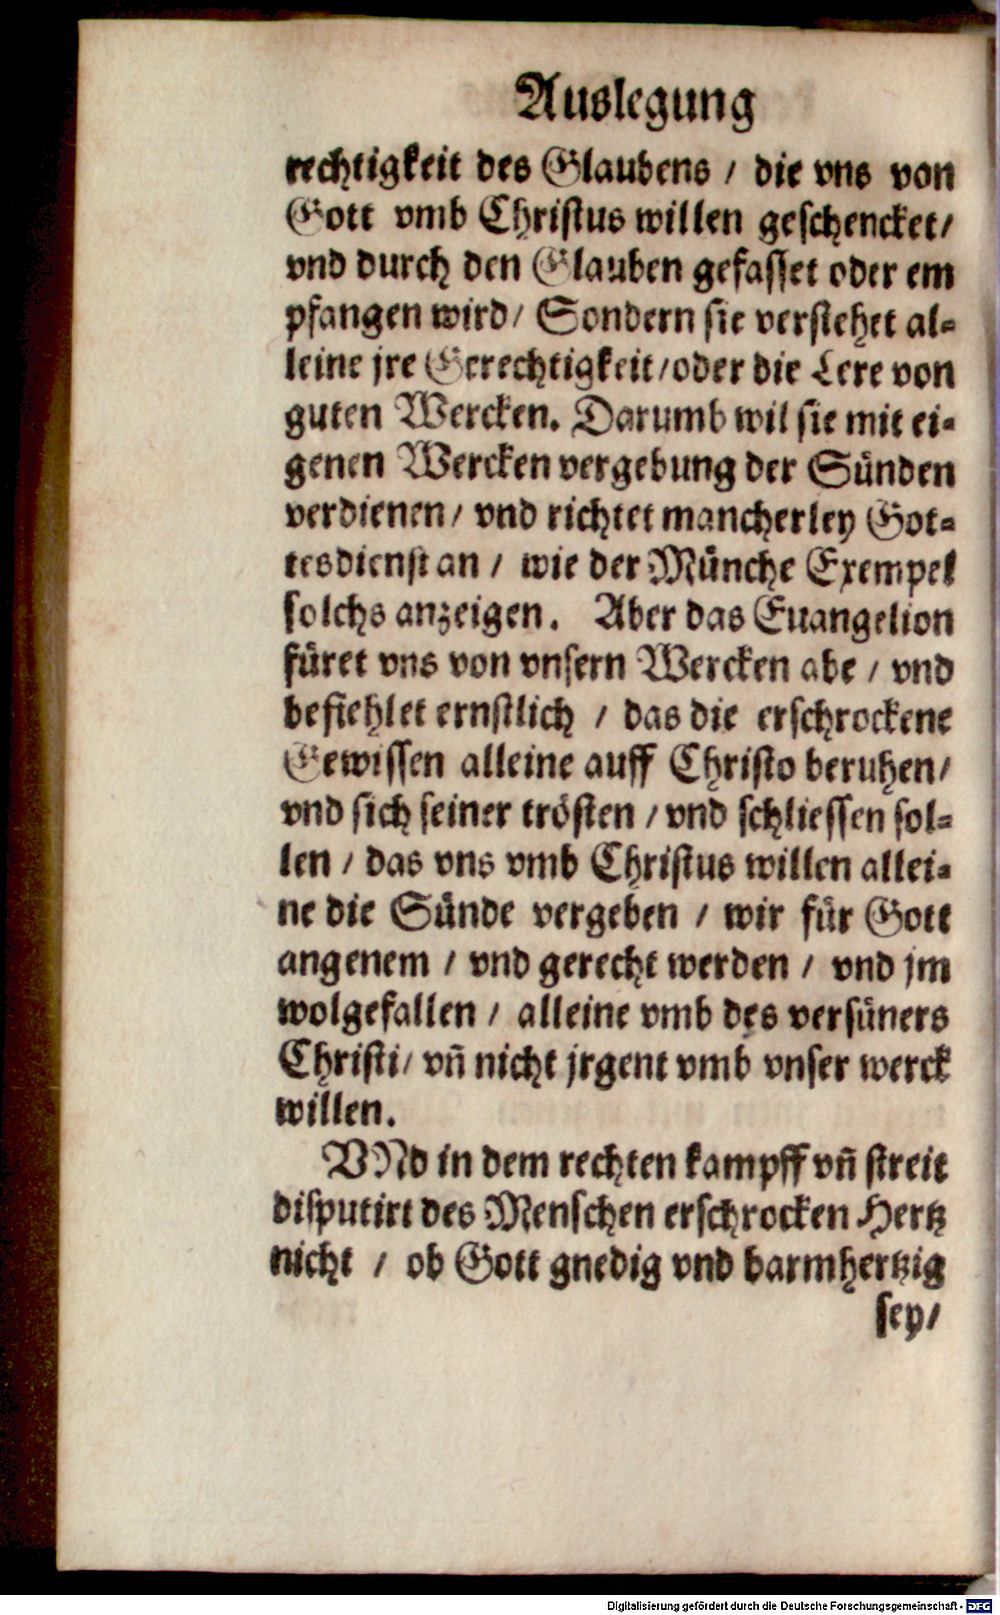 Auslegung
rechtigkeit des Glaubens / die vns von
Gott vmb Christus willen geschencket/
vnd durch den Glauben gefasset oder em
pfangen wird/ Sondern sie verstehet al-
leine jre Gerechtigkeit/oder die Lere von
guten Wercken. Darumb wil sie mit ei-
genen Wercken vergebung der Sünden
verdienen/ vnd richtet mancherley Got-
tesdienst an / wie der Münche Exempel
solchs anzeigen. Aber das Euangelion
füret vns von vnsern Wercken abe / vnd
befiehlet ernstlich / das die erschrockene
Gewissen alleine auff Christo beruhen/
vnd sich seiner trösten / vnd schliessen sol-
len / das vns vmb Christus willen allei-
ne die Sünde vergeben / wir für Gott
angenem / vnd gerecht werden / vnd jm
wolgefallen / alleine vmb des versüners
Christi/ vñ nicht jrgent vmb vnser werck
willen.
VNd in dem rechten kampff vñ streit
disputirt des Menschen erschrocken Hertz
nicht / ob Gott gnedig vnd barmhertzig
sey/
Digitalisierung gefördert durch die Deutsche Forschungsgemeinschaft - DFG